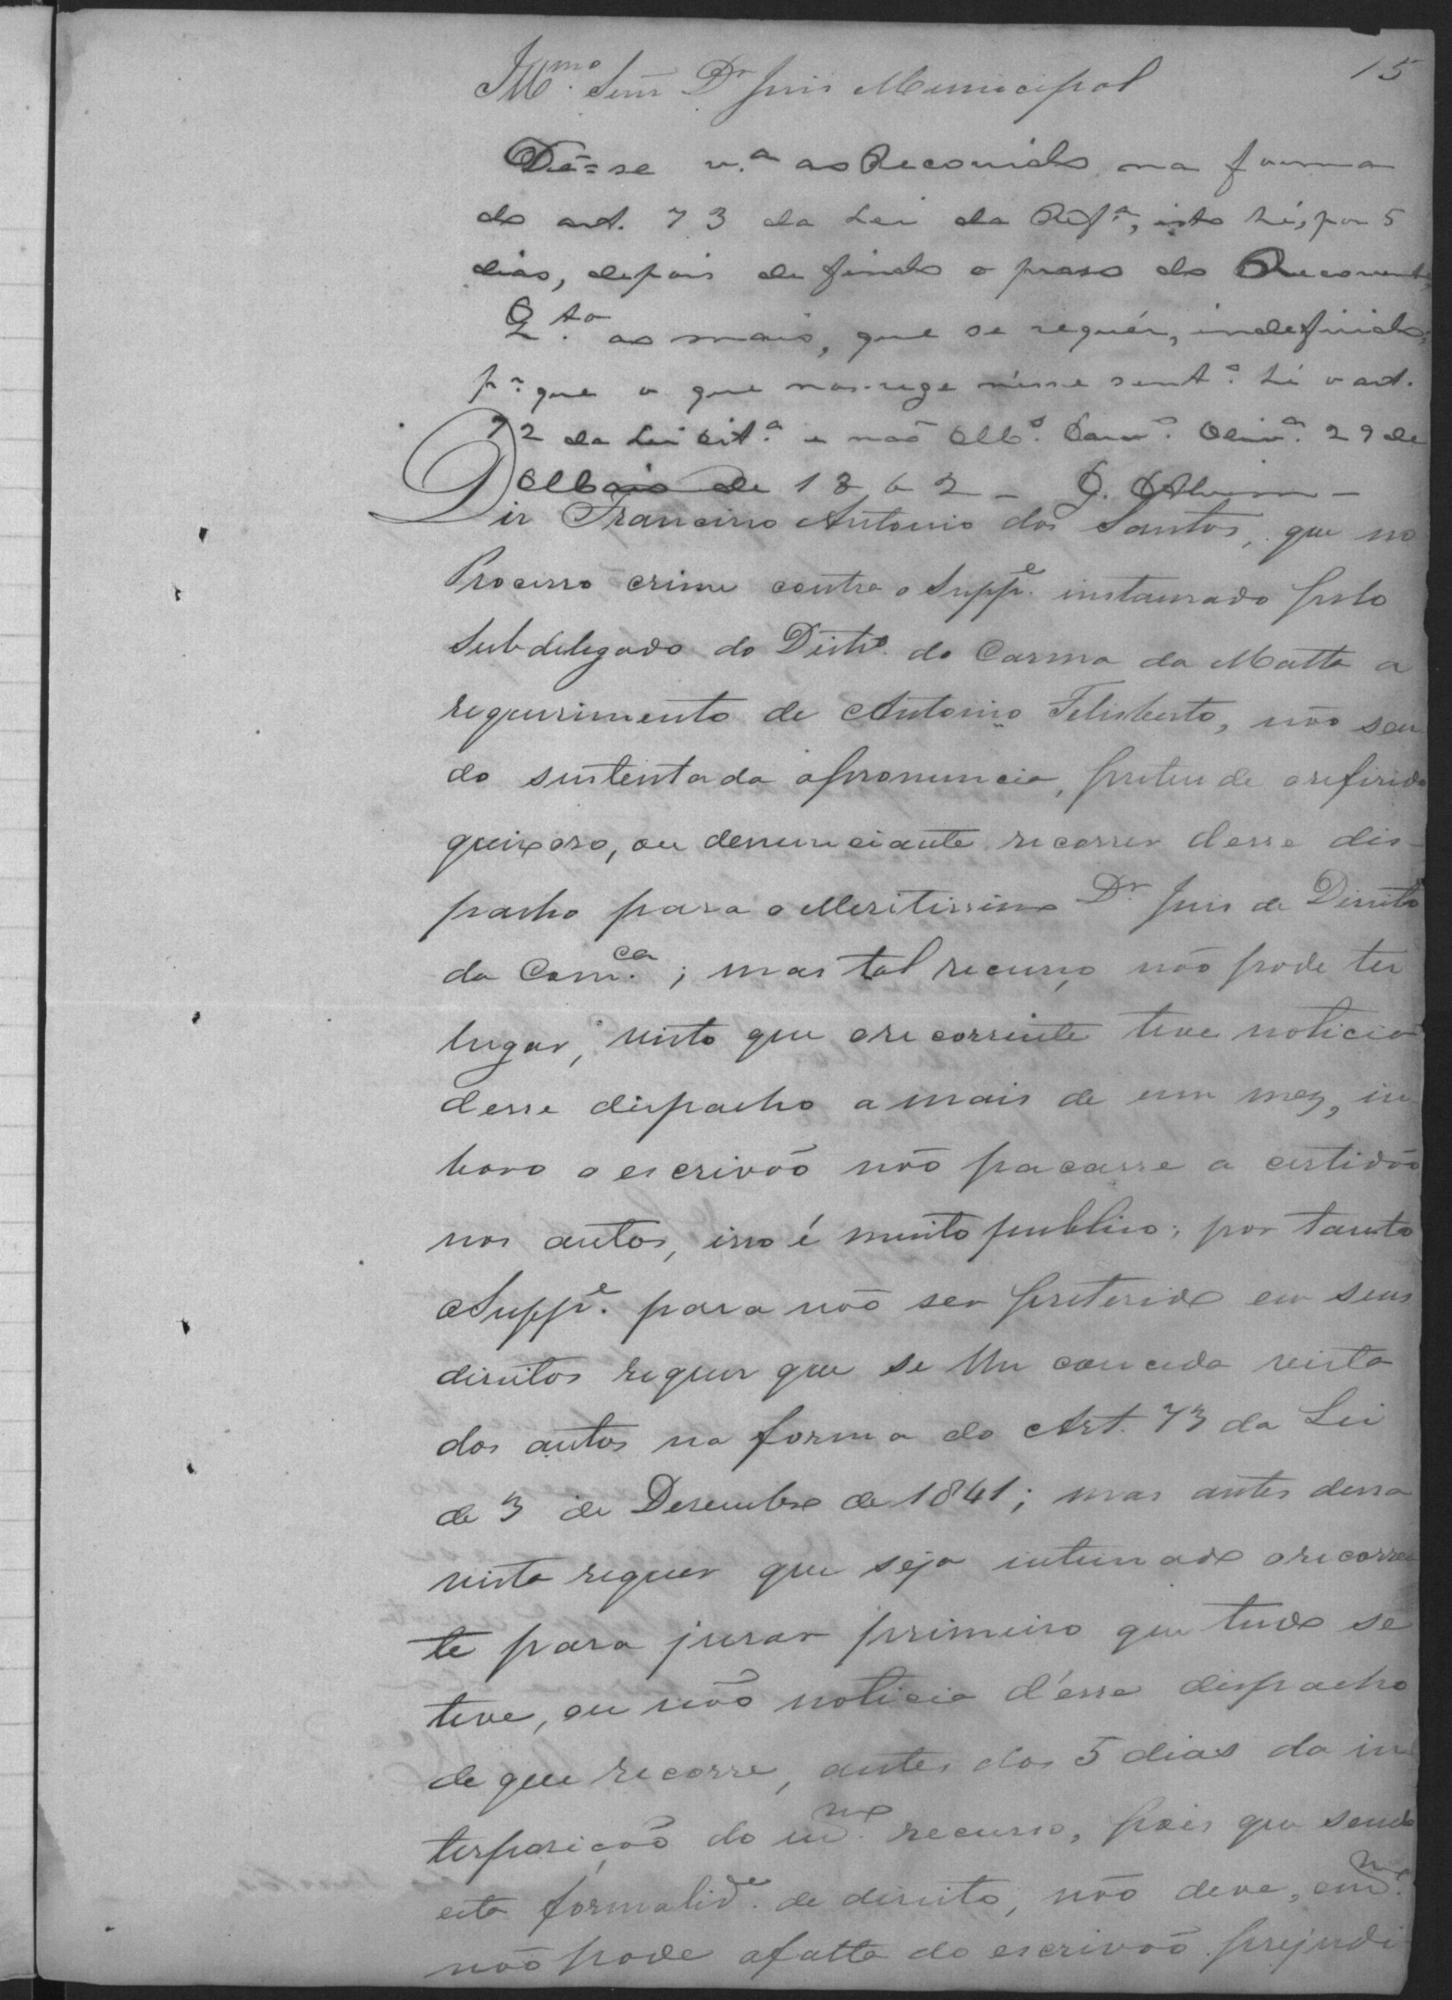 15
Illmo. Senr. Dr. Juis Municipal
Dê=se v.a ao Recorrido na forma
do art. 73 da Lei da Refa., isto hé, por 5
dias, depois de findo o praso do Recorrente,
Qto. ao mais, que se requér, indefirido,
pr. que o que nos rege n'esse sento. hé o art.
72 da Lei cita. e não
Olivra. 29 de
Maio de 1862 -
Diz Francisco Antonio dos Santos, que no
Processo crime contra o Suppe. instaurado pelo
Subdelegado do Distro. do Carmo da Matta a
requirimento de Antonio Felisberto, não sen
do sustentada apronuncia, pretende o refirido
queixoso, ou denunciante recorrer desse dis-
pacho para o Meritissimo Dr. Juis de Direito
da Comca.; mas tal recurço não pode ter
lugar, visto que o recorrente teve noticia
desse dispacho a mais de um mez, in
bora o escrivão não pacasse a certidão
nos autos, isso é muito publico; por tanto
o Suppe. para não ser preterido em seus
direitos requer que se lhe conceda vista
dos autos na forma do Art. 73 da Lei
de 3 de Desembro de 1841; mas antes dessa
vista requer que seja intimado o recorren
te para jurar primeiro que tudo se
teve, ou não noticia d'esse dispacho
de que recorre, antes dos 5 dias da in
terposição do mmo. recurso, pois que sendo
esta formalide. de direito, não deve, emmo.
não pode afalta do escrivão prejudi